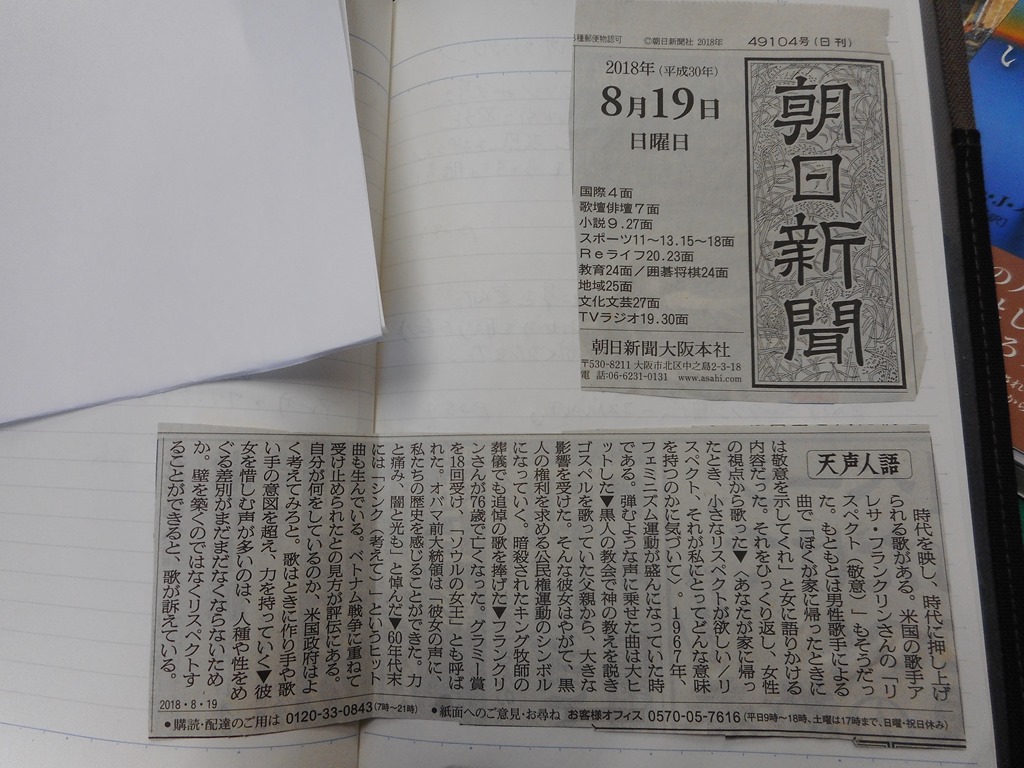 種郵便物認可 ©朝日新聞社 2018年 49104号(日刊)
朝日新聞
2018年(平成30年)
8月19日
日曜日
国際4面
歌壇俳壇7面
小説9.27面
スポーツ11〜13.15〜18面
Reライフ20.23面
教育24面/囲碁将棋24面
地域25面
文化文芸27面
TVラジオ19.30面
朝日新聞大阪本社
〒530-8211 大阪市北区中之島2-3-18
電話:06-6231-0131 www.asahi.com
天声人語
時代を映し、時代に押し上げ
られる歌がある。米国の歌手ア
レサ・フランクリンさんの「リ
スペクト(敬意)」もそうだっ
た。もともとは男性歌手による
曲で「ぼくが家に帰ったときに
は敬意を示してくれ」と女に語りかける
内容だった。それをひっくり返し、女性
の視点から歌った▼〈あなたが家に帰っ
たとき、小さなリスペクトが欲しい/リ
スペクト、それが私にとってどんな意味
を持つのかに気づいて〉。1967年、
フェミニズム運動が盛んになっていた時
である。弾むような声に乗せた曲は大ヒ
ットした▼黒人の教会で神の教えを説き
ゴスペルを歌っていた父親から、大きな
影響を受けた。そんな彼女はやがて、黒
人の権利を求める公民権運動のシンボル
になっていく。暗殺されたキング牧師の
葬儀でも追悼の歌を捧げた▼フランクリ
ンさんが76歳で亡くなった。グラミー賞
を18回受け、「ソウルの女王」とも呼ば
れた。オバマ前大統領は「彼女の声に、
私たちの歴史を感じることができた。力
と痛み、闇と光も」と悼んだ▼60年代末
には「シンク(考えて)」というヒット
曲も生んでいる。ベトナム戦争に重ねて
受け止められたとの見方が評伝にある。
自分が何をしているのか、米国政府はよ
く考えてみろと。歌はときに作り手や歌
い手の意図を超え、力を持っていく▼彼
女を惜しむ声が多いのは、人種や性をめ
ぐる差別がまだまだなくならないため
か。壁を築くのではなくリスペクトす
ることができると、歌が訴えている。
2018・8・19
●購読・配達のご用は 0120-33-0843(7時〜21時) ●紙面へのご意見・お尋ね お客様オフィス 0570-05-7616(平日9時〜18時、土曜は17時まで、日曜・祝日休み)